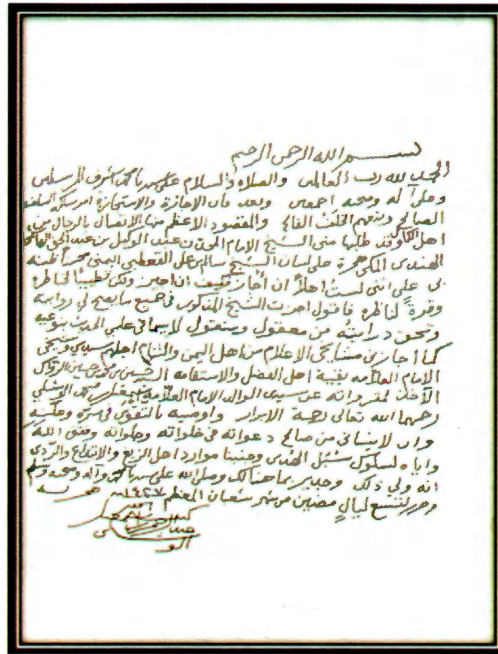 بسم الله الرحمن الرحيم
الحمد لله رب العالمين والصلاة والسلام على سيدنا محمد اشرف المرسلين
وعلى آله وصحبه اجمعين وبعد فان الاجازة والاستجازة امر سلكه السلف
الصالح وتبعهم الخلف الفالح والمقصود الاعظم منها الاتصال بالرجال من
اهل الكمال وقد طلبها مني الشيخ عبد الوكيل بن عبد الحق الهاشمي
الهندي المكي على لسان الشيخ سالم بن علي القحطبي اليمني بحسن ظنه
بي على انني لست اهلاً ان أُجاز فكيف ان اجيز ولكن تطييباً لخاطره
وقرةً لناظره فاقول اجزت الشيخ المذكور في جميع ما يصح لي روايته
وتحق درايته من معقول ومنقول لاسيما في علمي الحديث بنوعيه
كما اجازني مشايخي الاعلام من اهل اليمن والشام اجلهم سيدي وشيخي
الامام العلامه بقية اهل الفضل والاستقامه السيد حسين بن محمد
الآخذ لمقروءاته عن سيدي الوالد الامام العلامة
رحمهما الله تعالى رحمة الابرار واوصيه بالتقوى في سره وعلنه
وان لا ينساني من صالح دعواته في خلواته وجلواته وفقني الله
واياه لسلوك سُبُل الهدى وجنبنا موارد اهل الزيغ والابتداع والردى
انه ولي ذلك وجدير بما هنالك وصلى الله على سيدنا محمد وآله وصحبه وسلم
وحرر لتسع ليالٍ مضين من شهر شعبان المعظم ١٤٢٧